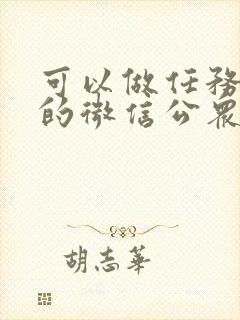 可以做任務
的微信公眾
胡志華